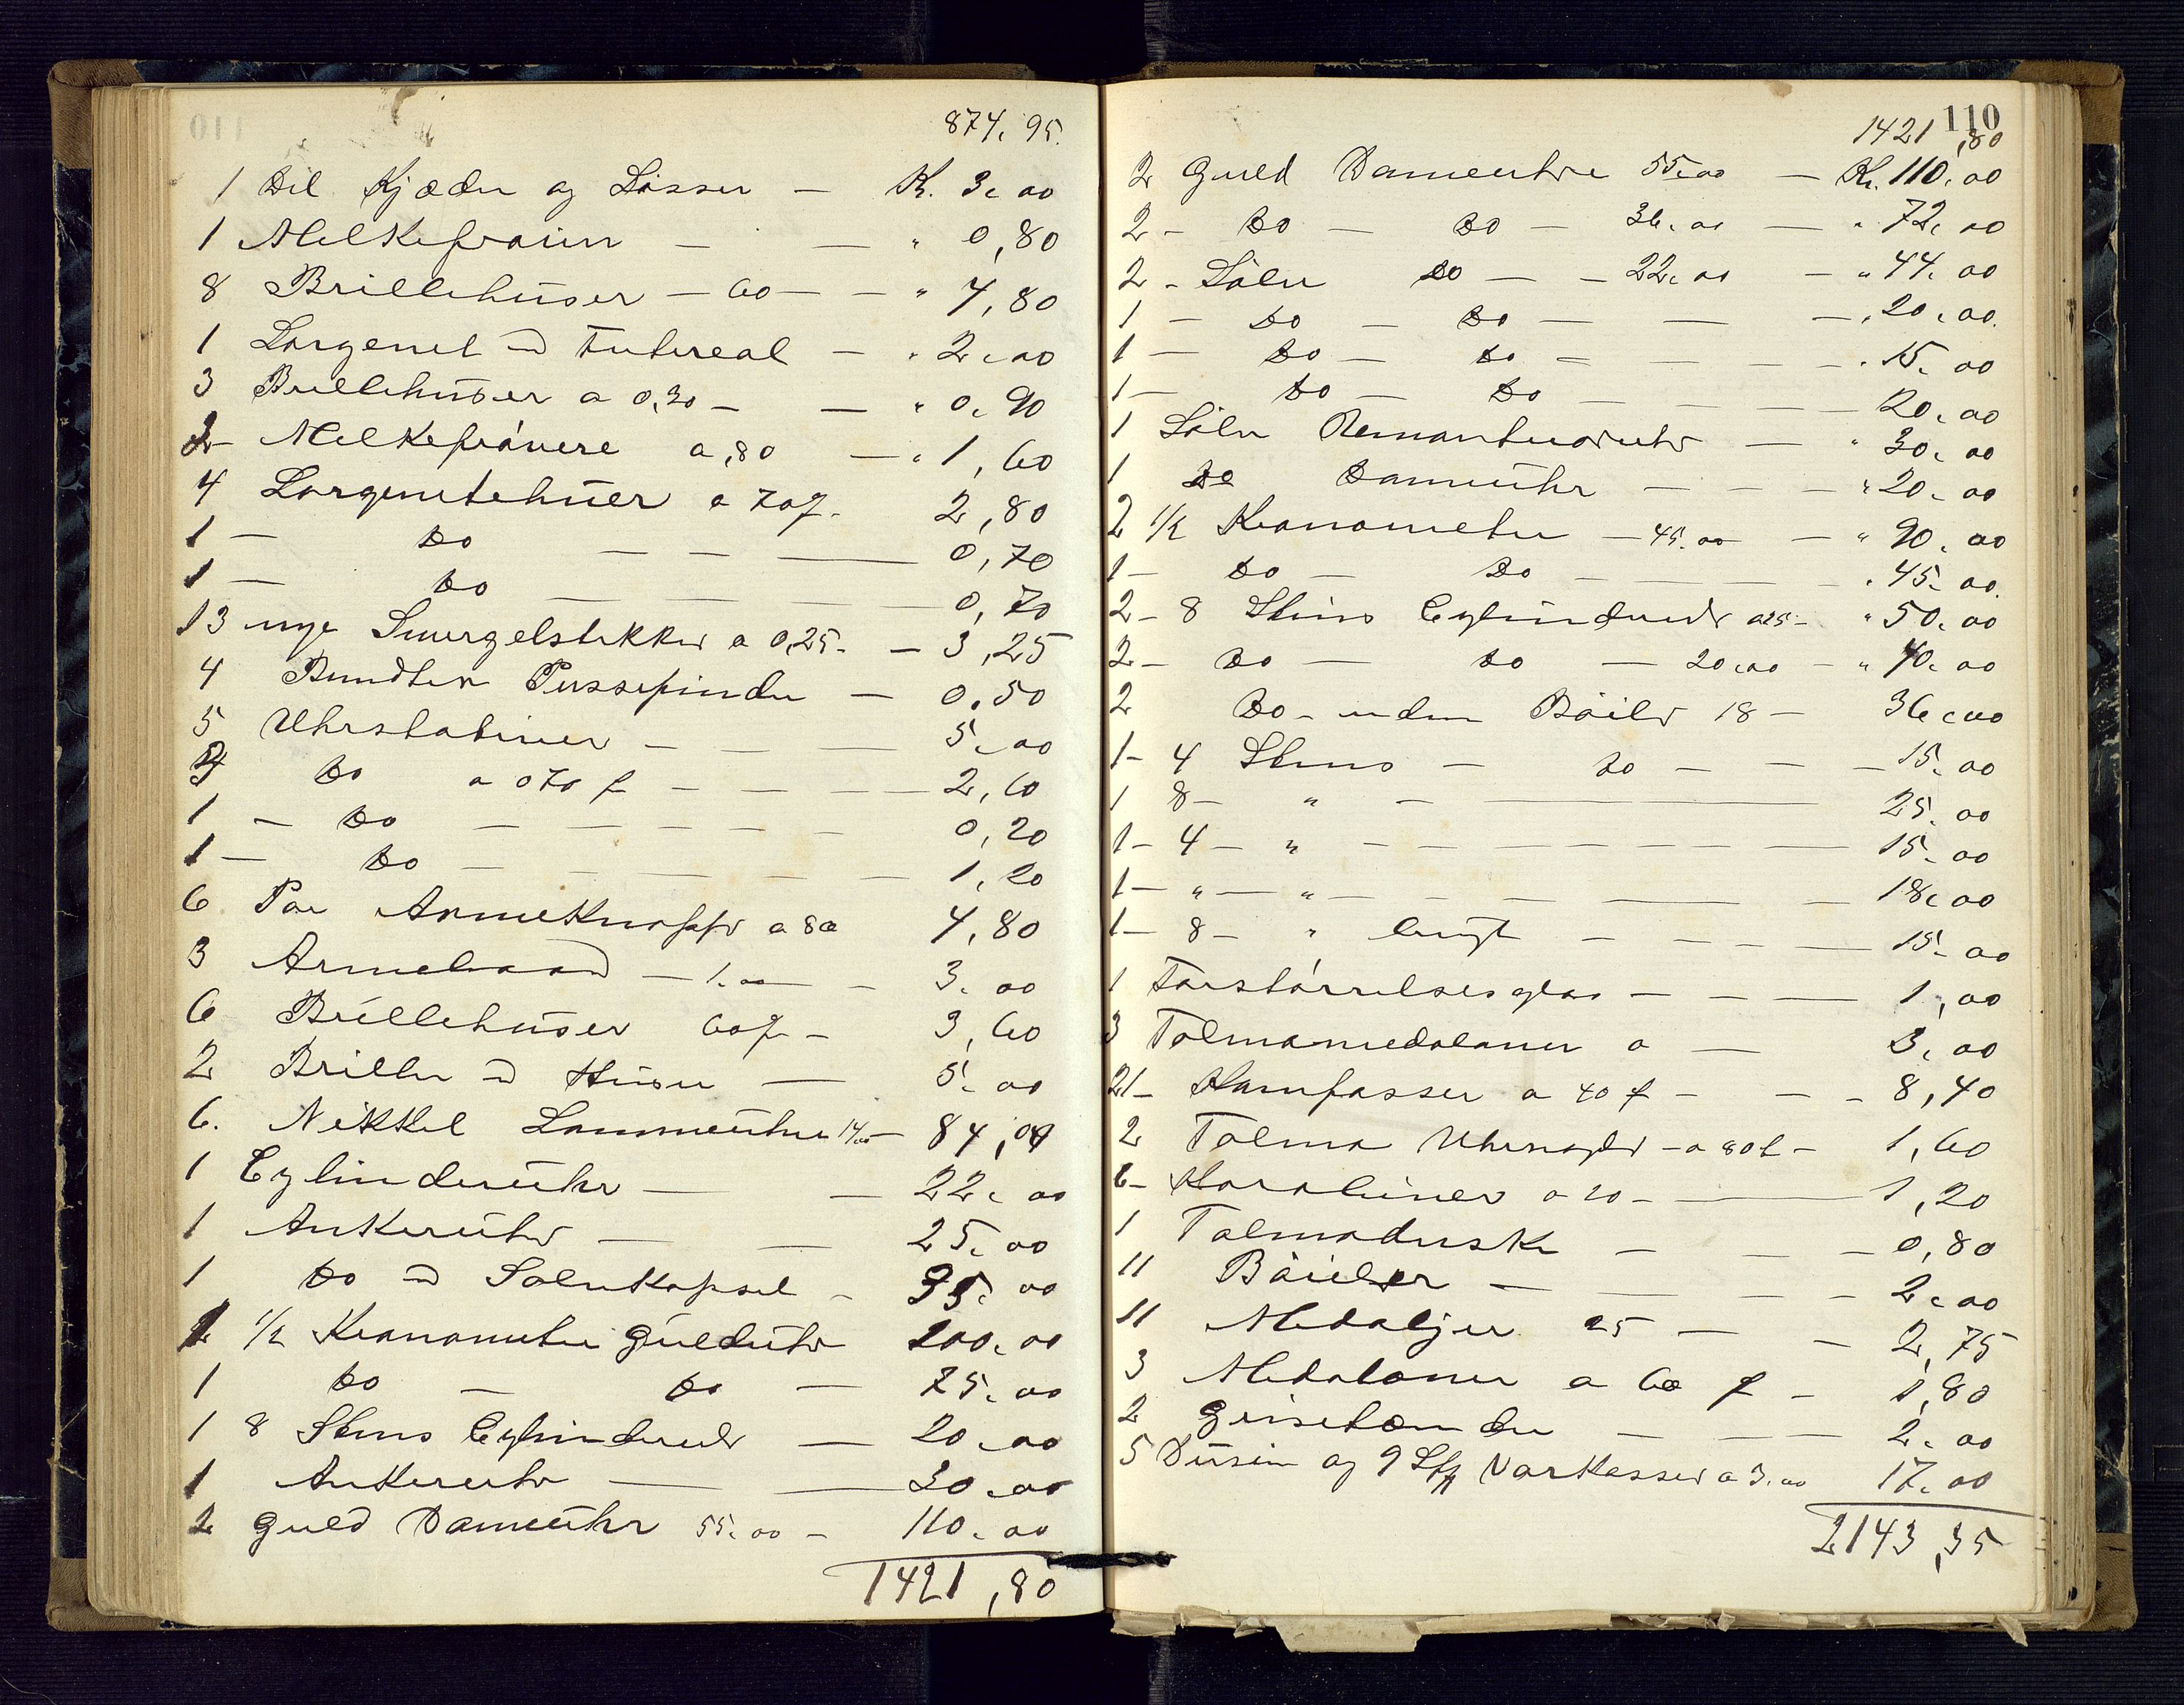 874,95.
1 Del Kjæder og Låsser — K. 3,00
1 Melkeprøver — — " 0,80
8 Brillehuser — 60 — — " 4,80
1 Lorgenet m Futereal — " 2,00
3 Brillehuser a 0,30 — — " 0,90
2 Melkeprøvere a ,80 — " 1,60
4 Lorgnetehuer a 70 f. 2,80
1 — Do — — — 0,70
1 — Do — — — 0,70
13 nye Smergelstikker a 0,25 — — 3,25
4 Bundter Pussepinder — 0,50
5 Uhrstativer — — — 5,00
Do a 070 f — — — 2,60
1 — Do — — — — — 0,20
1 — Do — — — — — 1,20
6 Par Armeknapper a 80 4,80
3 Armebaand — 1.00 — 3,00
6 Brillehuser 60 f — 3,60
2 Briller m Huser — 5,00
6. Nikkel Lommeuhre 14.00 — 84,00
1 Cylinderuhr — — 22,00
1 Ankeruhr — — 25,00
1 Do m Sølvkapsel — 35,00
1/2 Kronometer Gulduhr 200,00
1 Do — Do — 75,00
1 8 Stens Cylinderuhr — 20,00
1 Ankeruhr — — 30,00
2 Guld Dameuhr 55,00 — 110,00
1421,80
110
1421,80
2 Guld Dameuhre 55,00 — Kr. 110,00
2 — Do — Do — 36,00 — " 72,00
2 — Sølv Do — — 22,00 — " 44,00
1 — Do — Do — — — " 20,00.
1 — Do — Do — — — " 15,00
1 — Do — Do — — — 20,00
1 Sølv Remontuoruhr — " 30,00
1 Do Dameuhr — — — " 20,00
2 1/2 Kronometer — 45.00 — " 90,00
1 — Do — Do — — — " 45,00.
2 — 8 Stens Cylinderuhr a 25 — " 50,00
2 — Do — Do — 20,00 — " 40,00
2 Do — uden Bøiler 18 — 36,00
1 — 4 Stens — Do — — — 15,00
1 8 — " — — 25,00
1 — 4 — " — — — — — 15,00
1 — " — " — — — — — 18,00
1 — 8 — " brugt — — — — 15,00
1 Forstørrelsesglas — — — 1,00
3 Talmamedaloner a — 3,00
21 — Kampasser a 40 f — — — 8,40
2 Talma Uhrnøgler — a 80 f — 1,60
6 — Karabiner a 20 — — 1,20
1 Talmaduske — — — 0,80
11 Bøiler — — — — 2,00
11 Medaljer 25 — — 2,75
3 Medaloner a 60 f — 1,80
2 Grisetænder — — — 2,00
5 Dusin og 9 Stk Varkasser a 3.00 17,00
2143,35